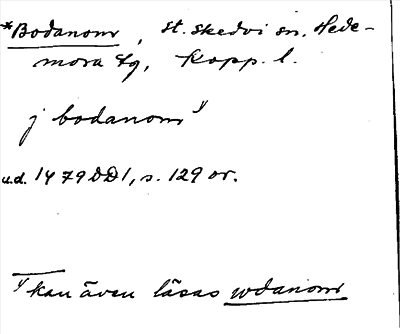 *Bodanom, St. Skedvi sn, Hede-
mora tg, Kopp. l.
j bodanom 1)
u.d. 1479 DD1, s. 129 or.
1) kan även läsas wdanom